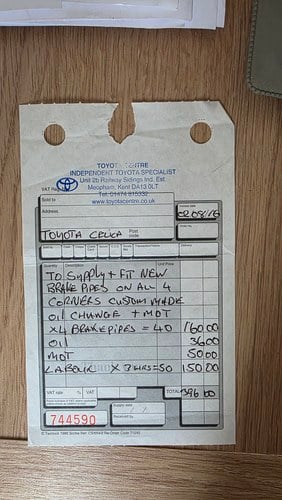 TOYOTA CENTRE
INDEPENDENT TOYOTA SPECIALIST
Unit 2b Railway Sidings Ind. Est.
Meopham, Kent DA13 0LT
Tel: 01474 815332
VAT Reg
www.toyotacentre.co.uk
Sold to
Invoice date
Address
TOYOTA CELICA
Post
code
Quantity
Description
Unit Price
TO SUPPLY + FIT NEW
BRAKE PIPES ON ALL 4
CORNERS CUSTOM MADE
OIL CHANGE + MOT
X4 BRAKE PIPES = 40 160 00
OIL 36 00
MOT 50 00
LABOUR X 3 HRS = 50 150 00
VAT rate % VAT
TOTAL 396 00
744590
Supply date
Received by